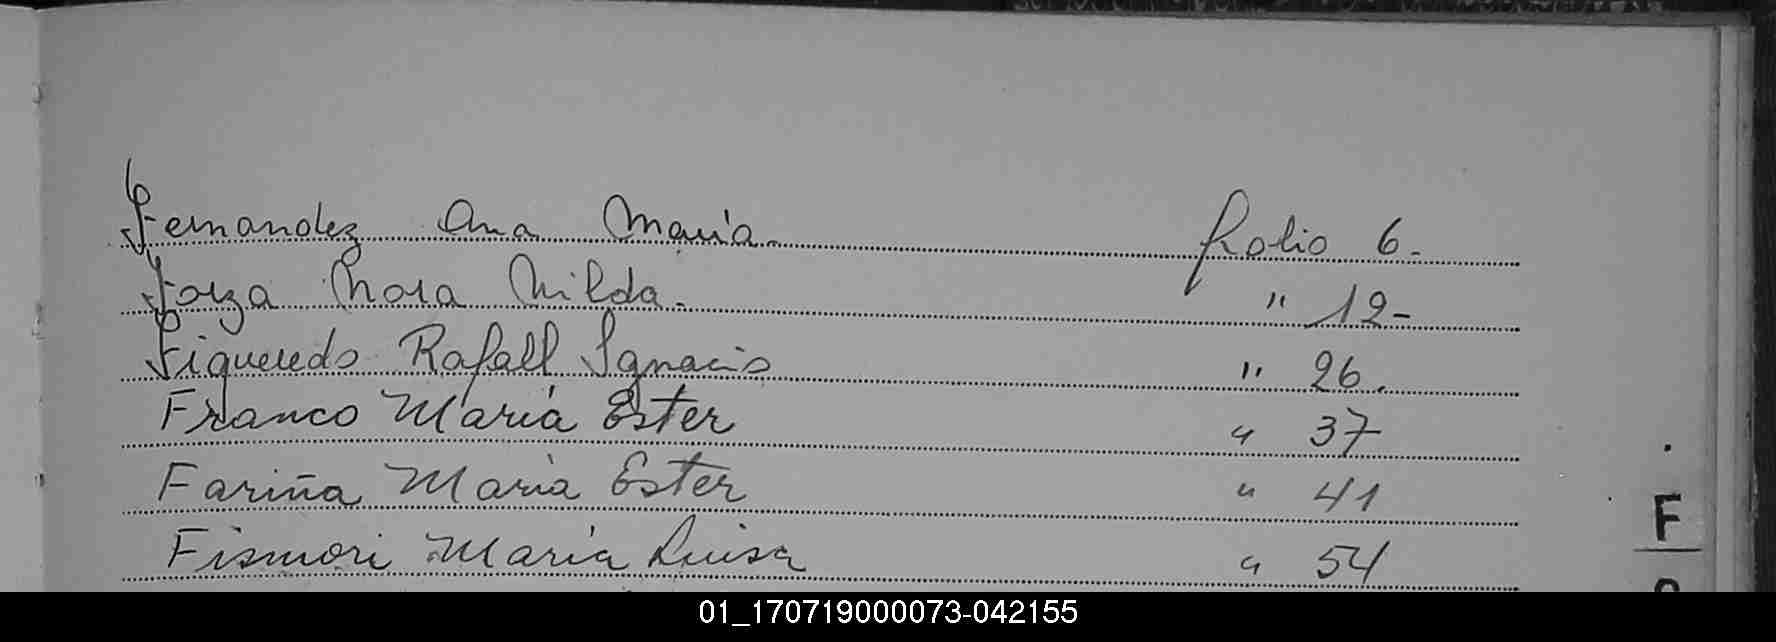 Fernandez Ana Maria. Folio 6.
Forza Nora Nilda. " 12-
Figueredo Rafall Ignacio " 26.
Franco María Ester " 37
Fariña María Ester " 41
Fismori María Luisa " 54
F
01_170719000073-042155